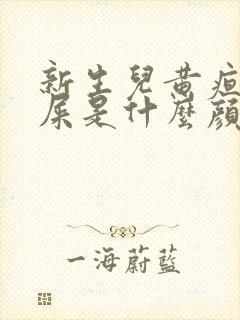 新生兒黃疸
屎是什麼顏
一海蔚藍